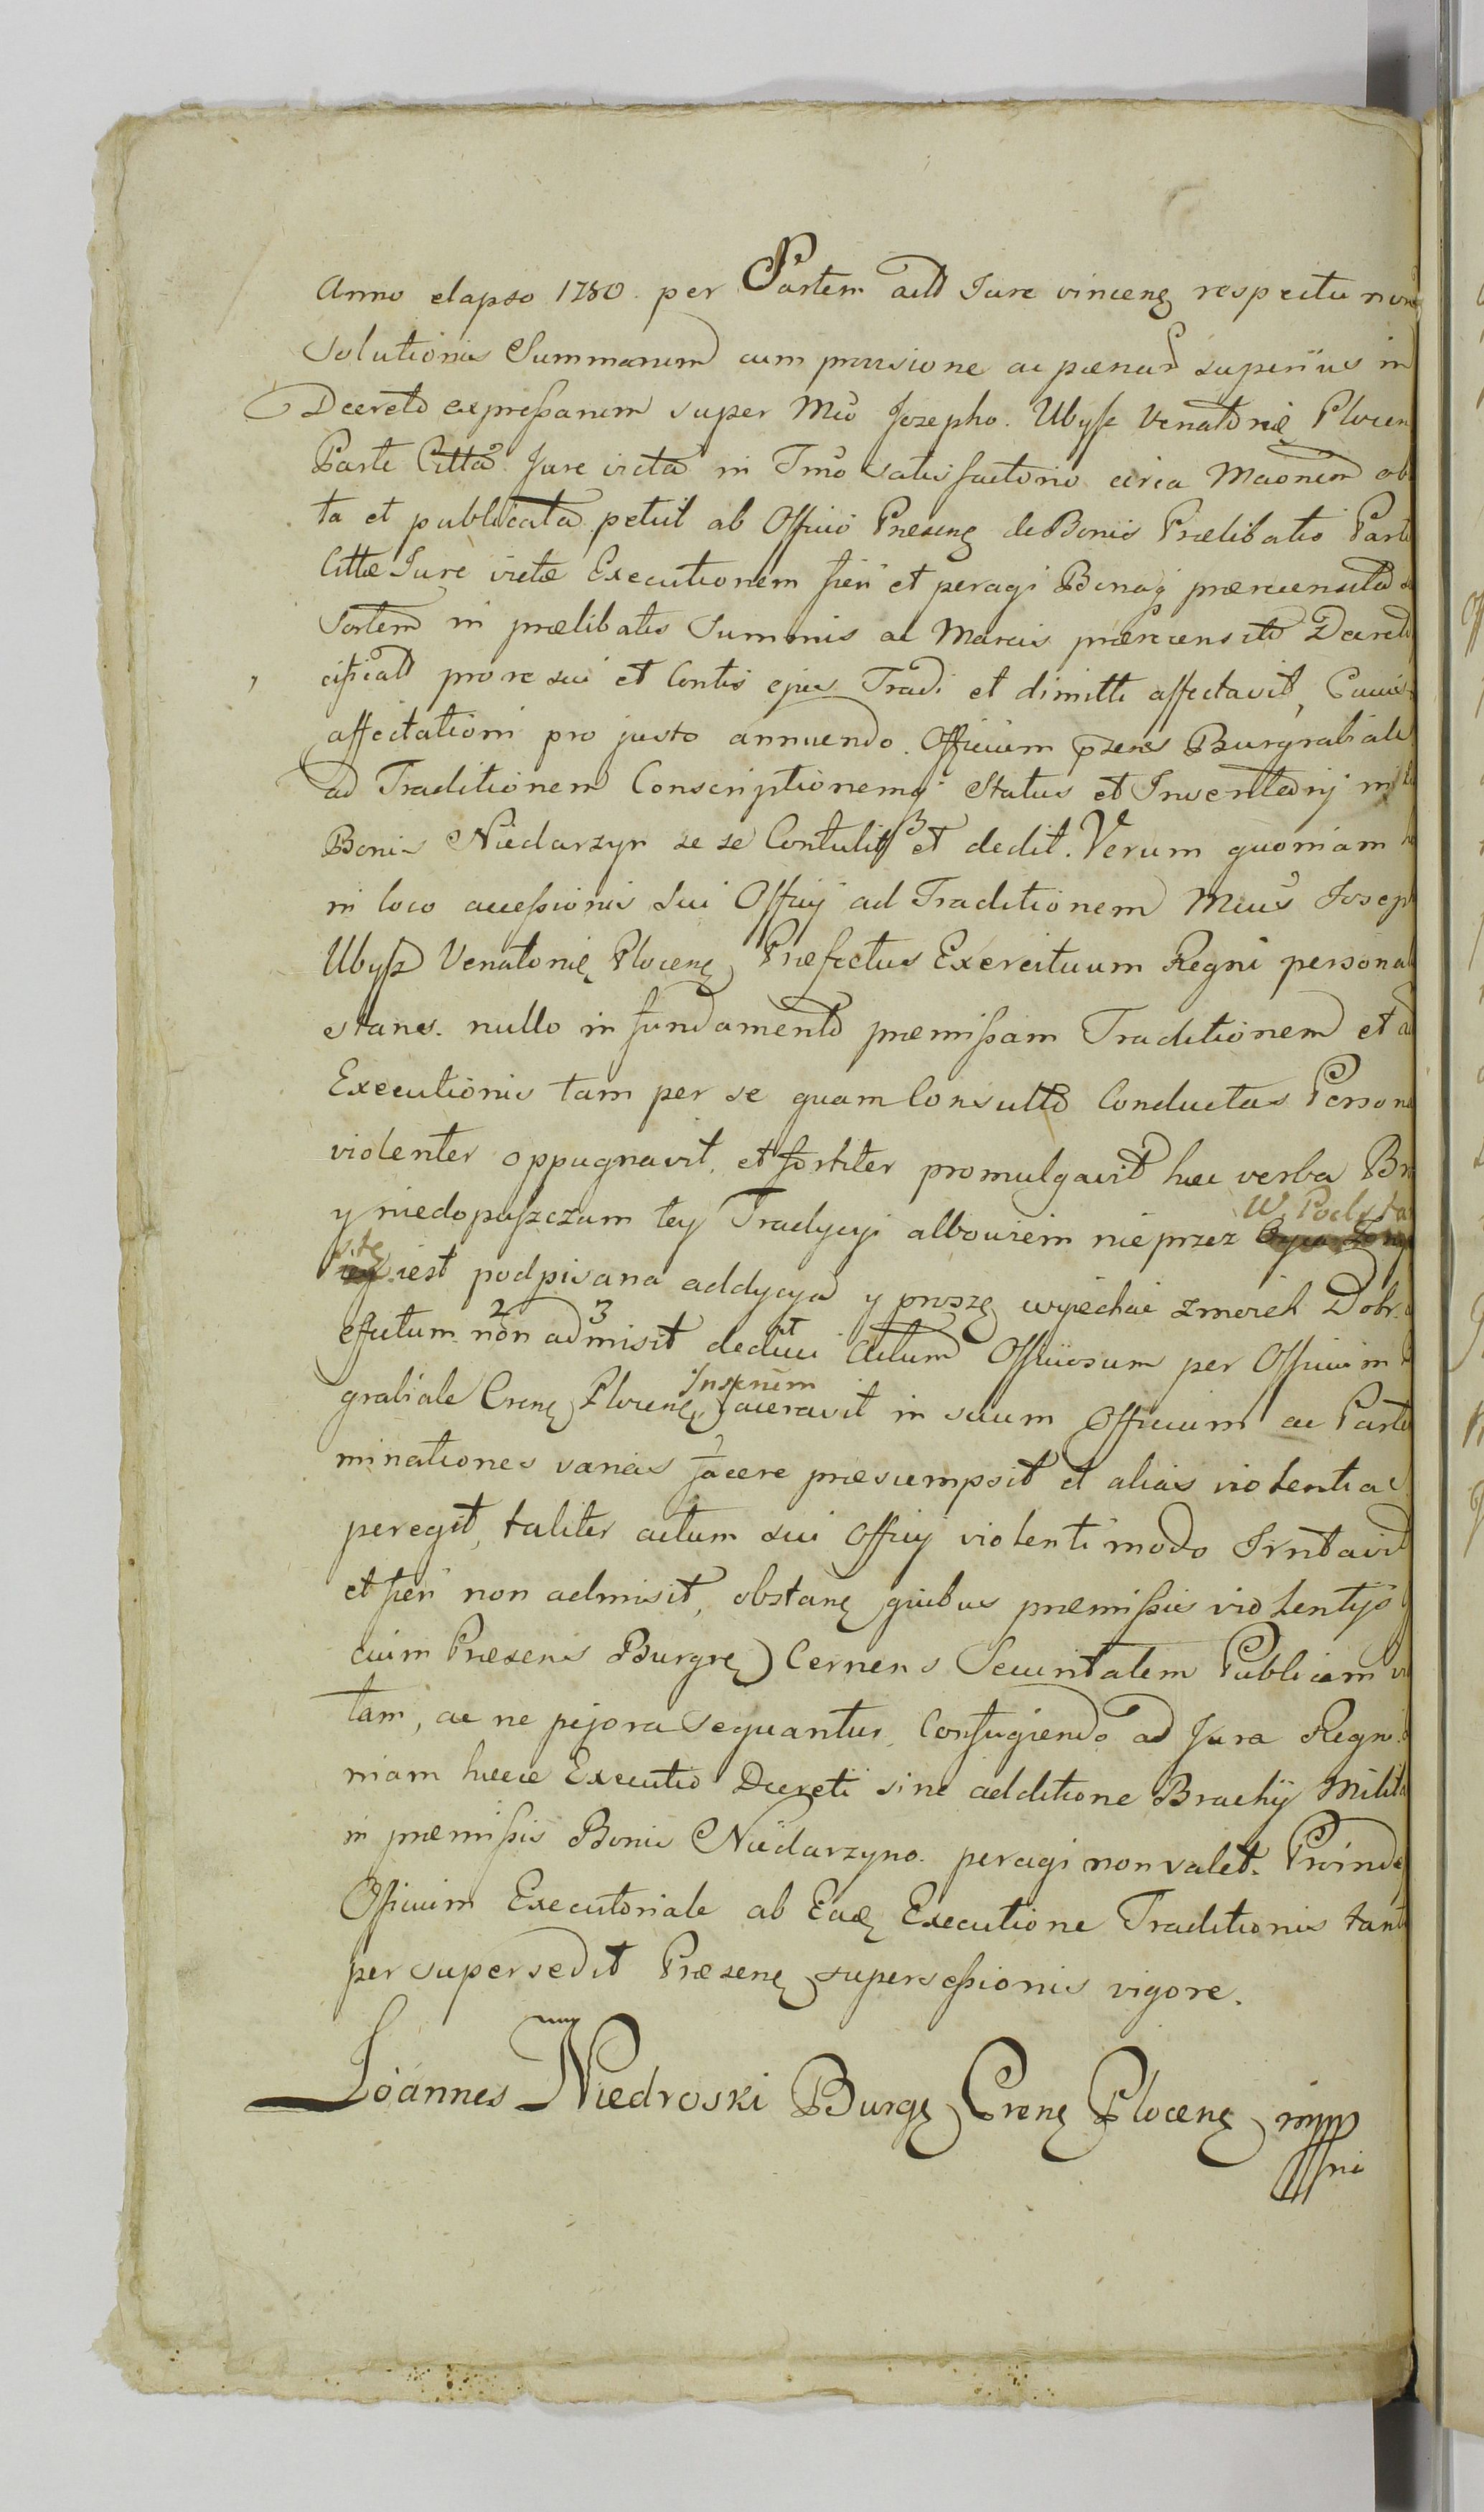 Anno elapso 1780. per Partem actt Jure vincenę respectu non
Solutionis Summarum cum provisione ac pænar superius in
Decreto expreßarum super Mco Josepho. Ubysz Venatorię Plocen
Parte Citta Jure victa in Tmo satisfactorio circa Maonem ob
ta et publicata petiit ab Officio Præsenę de Bonis Prælibatis Parti
Cittæ Jure victæ Executionem fieri et peragi Bonaq præcensita
Sortem in prælibatis Summis ac Marcis præcensito Decreto
cificatt pro re sui et Contis ejus Tradi et dimitti affectavit, Cuius
affectationi pro justo annuendo. Officium præns Burgrabiale
ad Traditionem Conscriptionemq Status et Inventarij in
Bonis Niedarzyn se se Contulit et dedit. Verum quoniam
in loco accessionis sui Officij ad Traditionem Mcus Joseph
Ubysz Venatorię Plocenę Præfectus Exercituum Regni personal
stans. nullo in fundamento præmißam Traditionem et
Executionis tam per se quam Consulto Conductas Person
violenter oppugnavit, et fortiter promulgavit hæc verba Br
y niedopuszczam tey Tradycyi albowiem nie przez W. Podsta
stę iest podpisana addycya y proszę wyiechać zmoich Dobr
efutum 2 non 3 admisit deduci Actum Officiosum per Officium
grabiale Crenę Plocenę Insenim aceravit in suum Officium ac Parte
minationes varias jacere præsumpsit et alias violentias
peregit, taliter actum sui Officij violenti modo Irritavit
et fieri non admisit, obstanę quibus præmißis violentijs
cium Præsens Burgrę Cernens Securitatem Publicam vi
tam, ac ne pejora sequantur, Confugiendo ad Jura Regni
niam hæcce Executio Decreti sine additione Brachij Milita
in præmißis Bonis Niedarzyno. peragi non valet. Proinde
Officium Executoriale ab Eadę Executione Traditionis tant
per supersedit Præsenę superseßionis vigore.
Joannes Niedroski Burgę Crenę Plocenę mpp